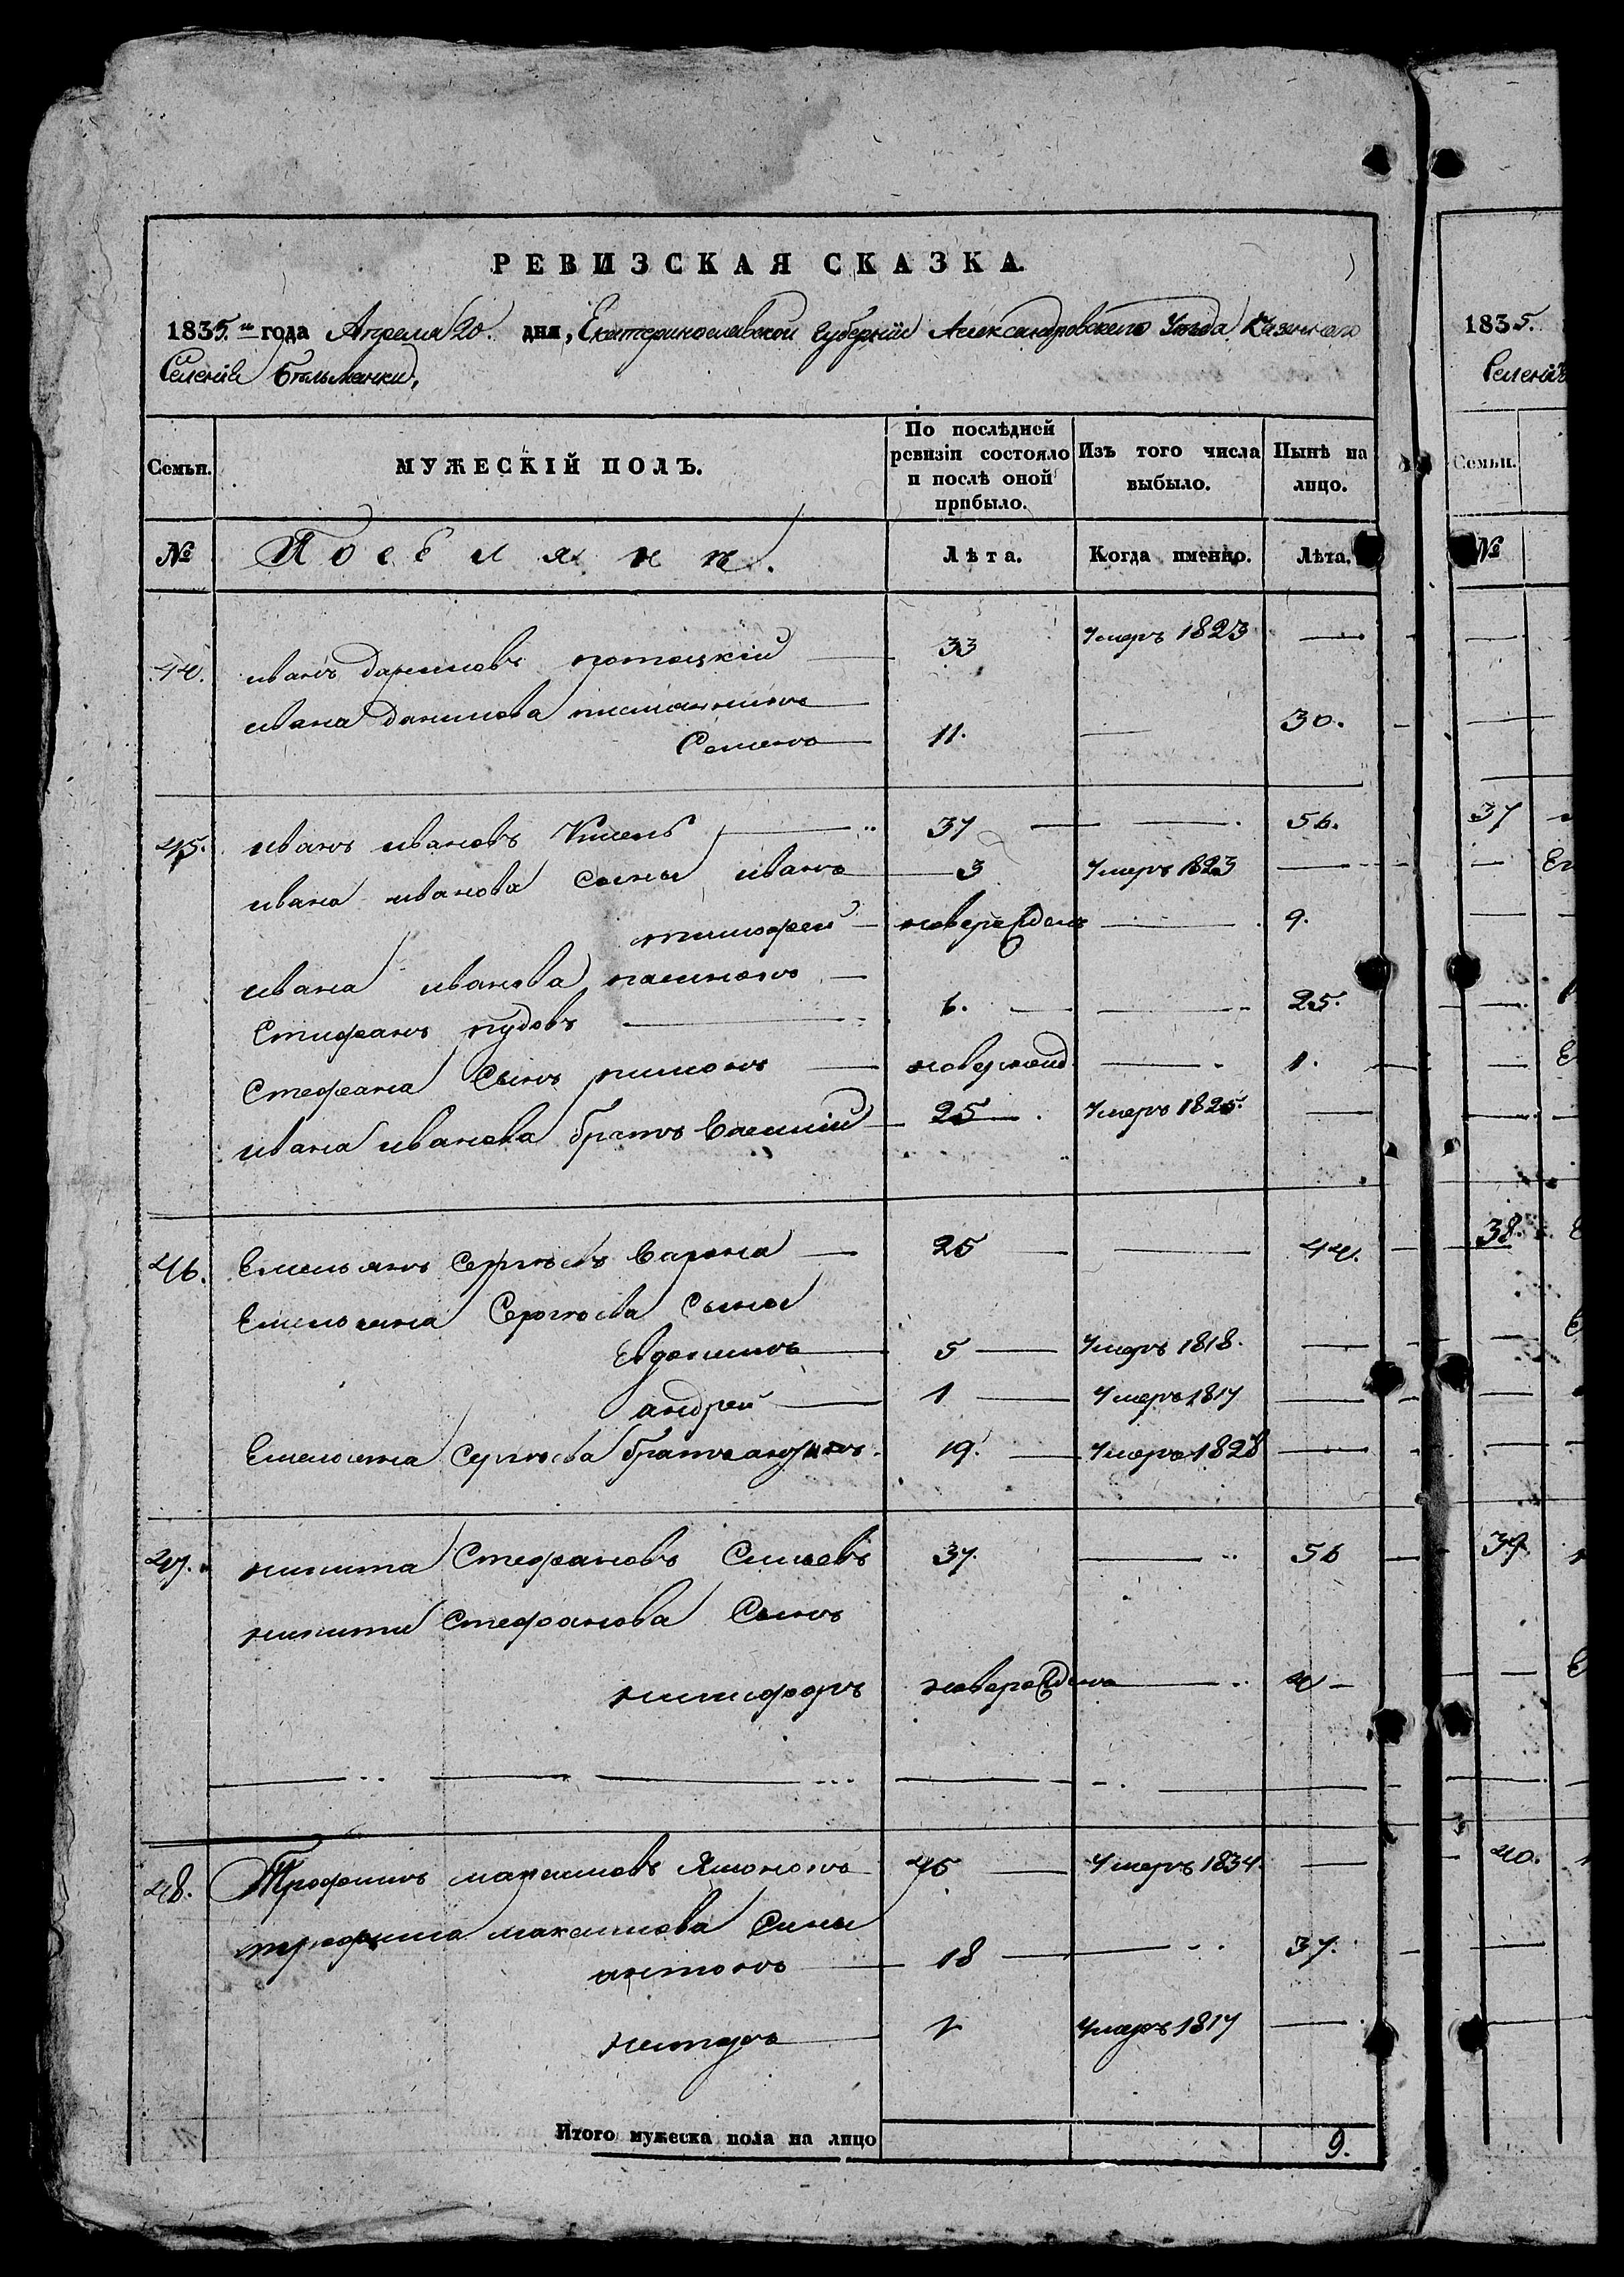 РЕВИЗСКАЯ СКАЗКА.
1835.го года Апреля 20. дня, Екатеринославской губернiи Александровского Уѣзда Казенного
Селенiя Бѣльманки,
Семьи.
МУЖЕСКIЙ ПОЛЪ.
По послѣдней ревизiи состояло и послѣ оной прибыло.
Изъ того числа выбыло.
Нынѣ на лицо.
№
Поселяне.
Лѣта.
Когда именно.
Лѣта.
44. иванъ даниловъ потоцкiй 33 Умеръ 1823 —
ивана данилова племянникъ
Семенъ 11. — 30.
45. иванъ ивановъ 37 — 56.
ивана иванова сыны иванъ 3 Умеръ 1823 —
тимофей новорожденъ — 9.
ивана иванова пасинокъ —
Стефанъ пудовъ 6. — 25.
Стефана Сынъ пименъ новорожд. — 1.
ивана иванова братъ Василiй 25 Умеръ 1825. —
46. Емельянъ Сергѣевъ 25 — 44.
Емельяна Сергѣева Сыны
Евдокимъ 5 — Умеръ 1818. —
андрей 1 — Умеръ 1817 —
Емельяна Сергѣева братъ 19. — Умеръ 1828 —
47. никита Стефановъ 37. — 56
никиты Стефанова Сынъ
никифоръ новорожденъ — 4 —
48. Трофимъ максимовъ 45 — Умеръ 1834. —
трофима максимова Сыны
антонъ 18 — 37.
петръ 1 Умеръ 1817 —
Итого мужеска пола на лицо 9.
1835.
Селенiя
Семьи.
№
37
38.
39
40.